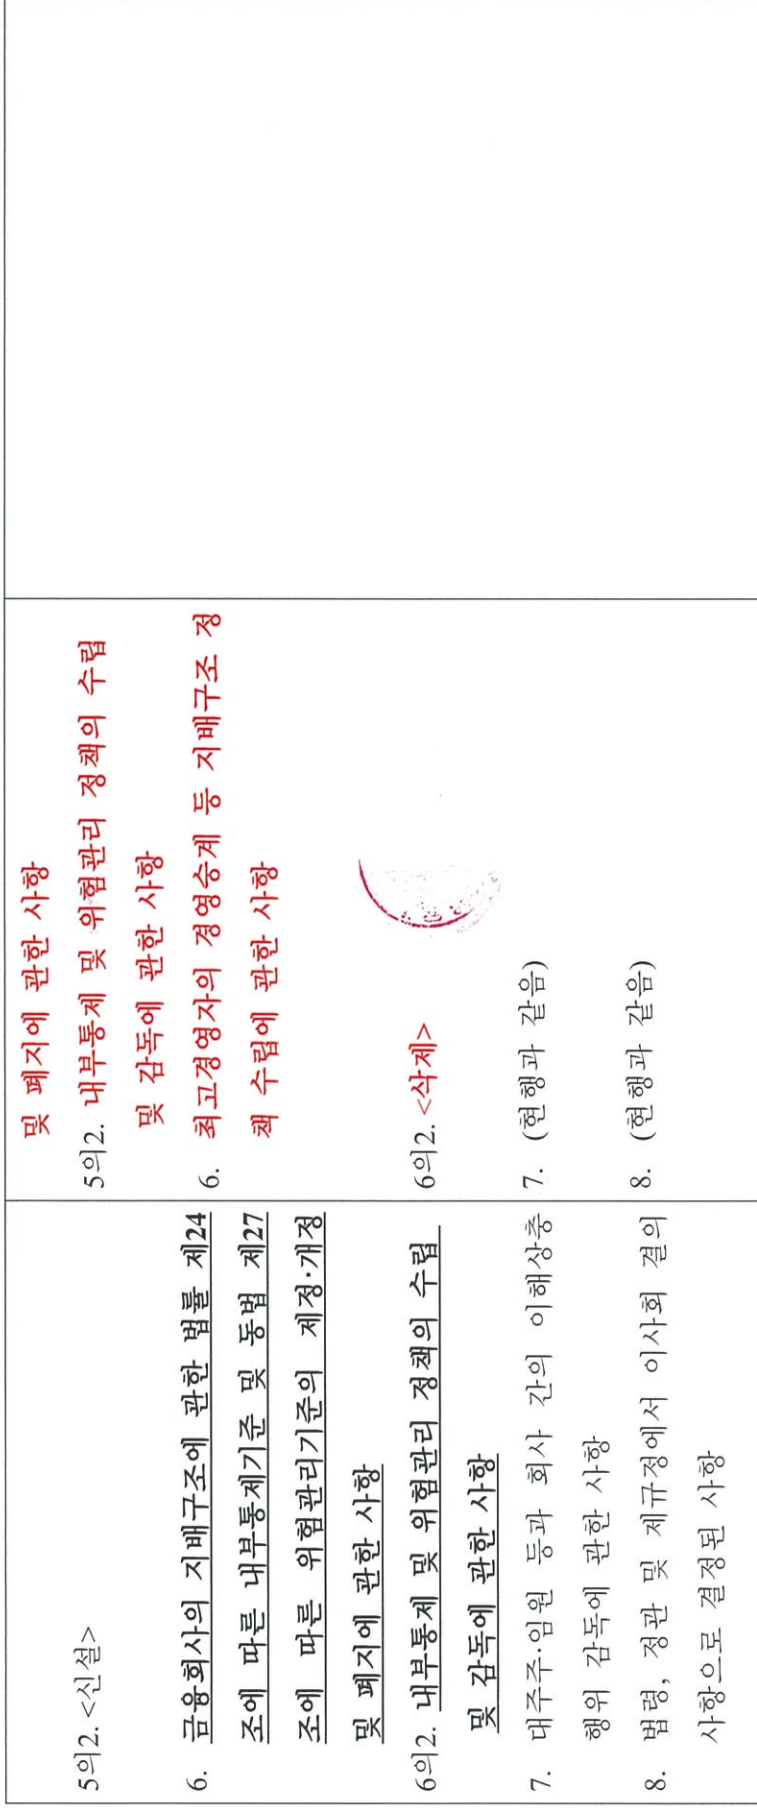 5의2. <신설>
6. 금융회사의 지배구조에 관한 법률 제24
조에 따른 내부통제기준 및 동법 제27
조에 따른 위험관리기준의 제정·개정
및 폐지에 관한 사항
6의2. 내부통제 및 위험관리 정책의 수립
및 감독에 관한 사항
7. 대주주·임원 등과 회사 간의 이해상충
행위 감독에 관한 사항
8. 법령, 정관 및 제규정에서 이사회 결의
사항으로 결정된 사항
및 폐지에 관한 사항
5의2. 내부통제 및 위험관리 정책의 수립
및 감독에 관한 사항
6. 최고경영자의 경영승계 등 지배구조 정
책 수립에 관한 사항
6의2. <삭제>
7. (현행과 같음)
8. (현행과 같음)